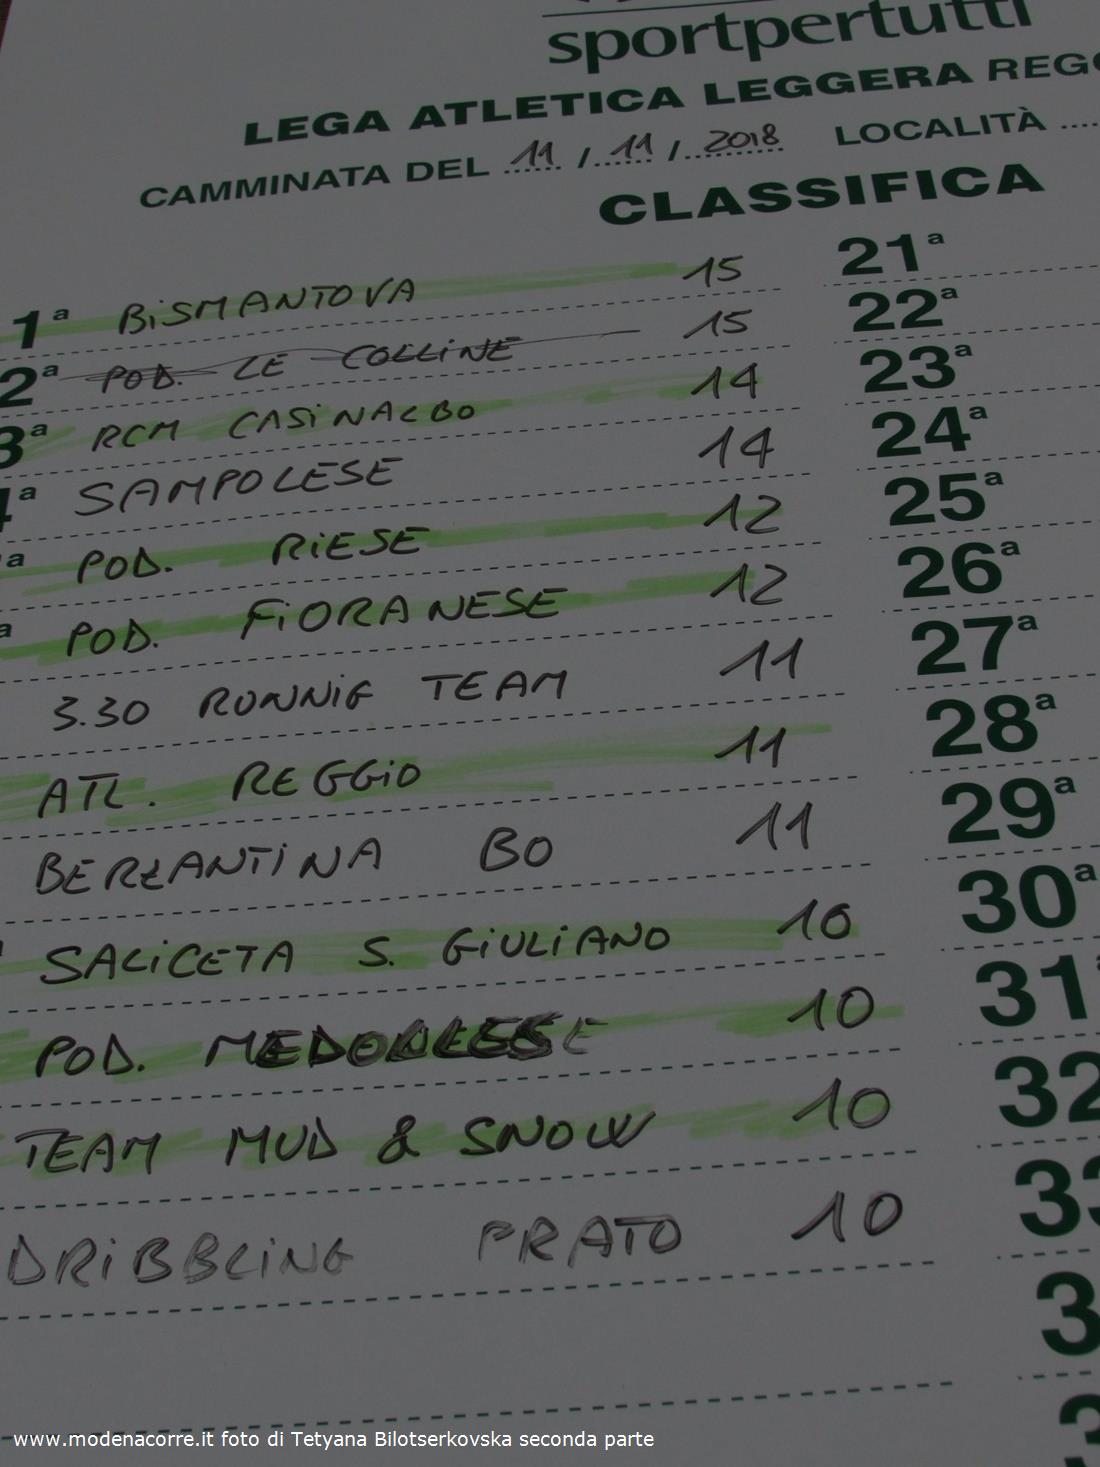 sportpertutti
LEGA ATLETICA LEGGERA REGG
CAMMINATA DEL 11 / 11 / 2018 LOCALITÀ ....
CLASSIFICA
1ª BiSMANTOVA 15
2ª POD. LE COLLINE 15
3ª RCM CASiNALBO 14
4ª SAMPOLESE 14
ª POD. RiESE 12
ª POD. FiORANESE 12
3.30 RUNNiG TEAM 11
ATL. REGGiO 11
BERZANTiNA BO 11
SALiCETA S. GiULiANO 10
POD. MEDOLLESE 10
TEAM MUD & SNOW 10
DRiBBLiNG PRATO 10
21ª
22ª
23ª
24ª
25ª
26ª
27ª
28ª
29ª
30ª
31ª
32
33
3
3
www.modenacorre.it foto di Tetyana Bilotserkovska seconda parte